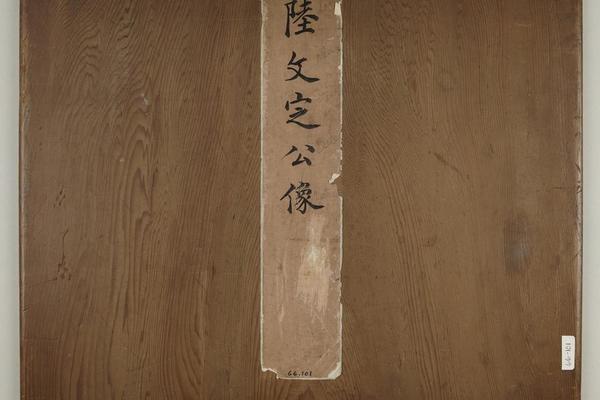 陸文定公像
66.101